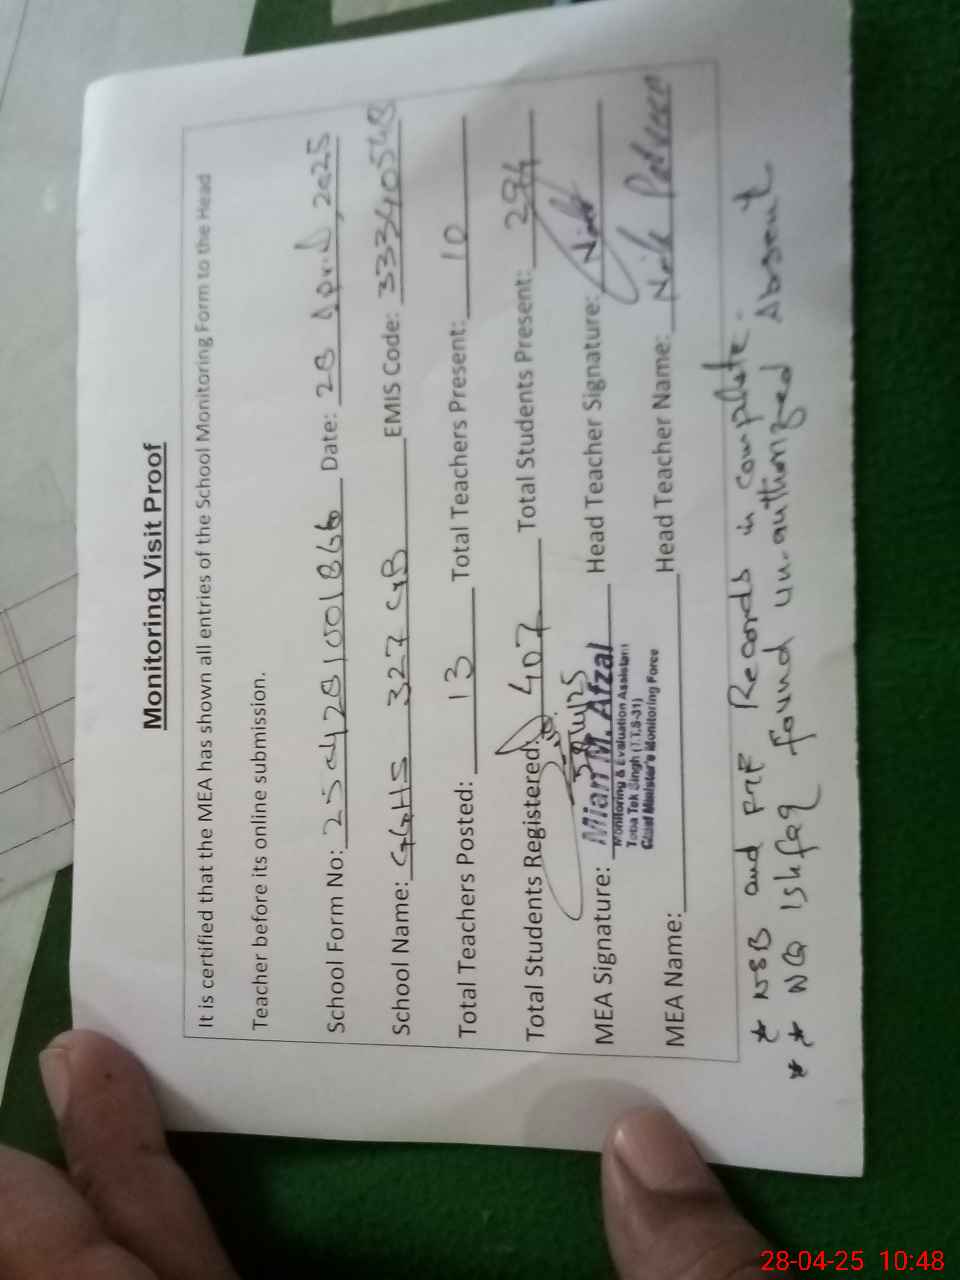 Monitoring Visit Proof
It is certified that the MEA has shown all entries of the School Monitoring Form to the Head
Teacher before its online submission.
School Form No: Date: 28 April, 2025
School Name: GGHS 327 GB EMIS Code: 33340548
Total Teachers Posted: 13 Total Teachers Present: 10
Total Students Registered: 407 Total Students Present: 294
MEA Signature: Mian M. Afzal Head Teacher Signature:
Monitoring & Evaluation Assistant
Toba Tek Singh (T.T.S-31)
Chief Minister's Monitoring Force
MEA Name: Head Teacher Name: Parveen
* NSB and FTF Records in complete.
** NQ Ishfaq found un-authorized Absent
28-04-25 10:48